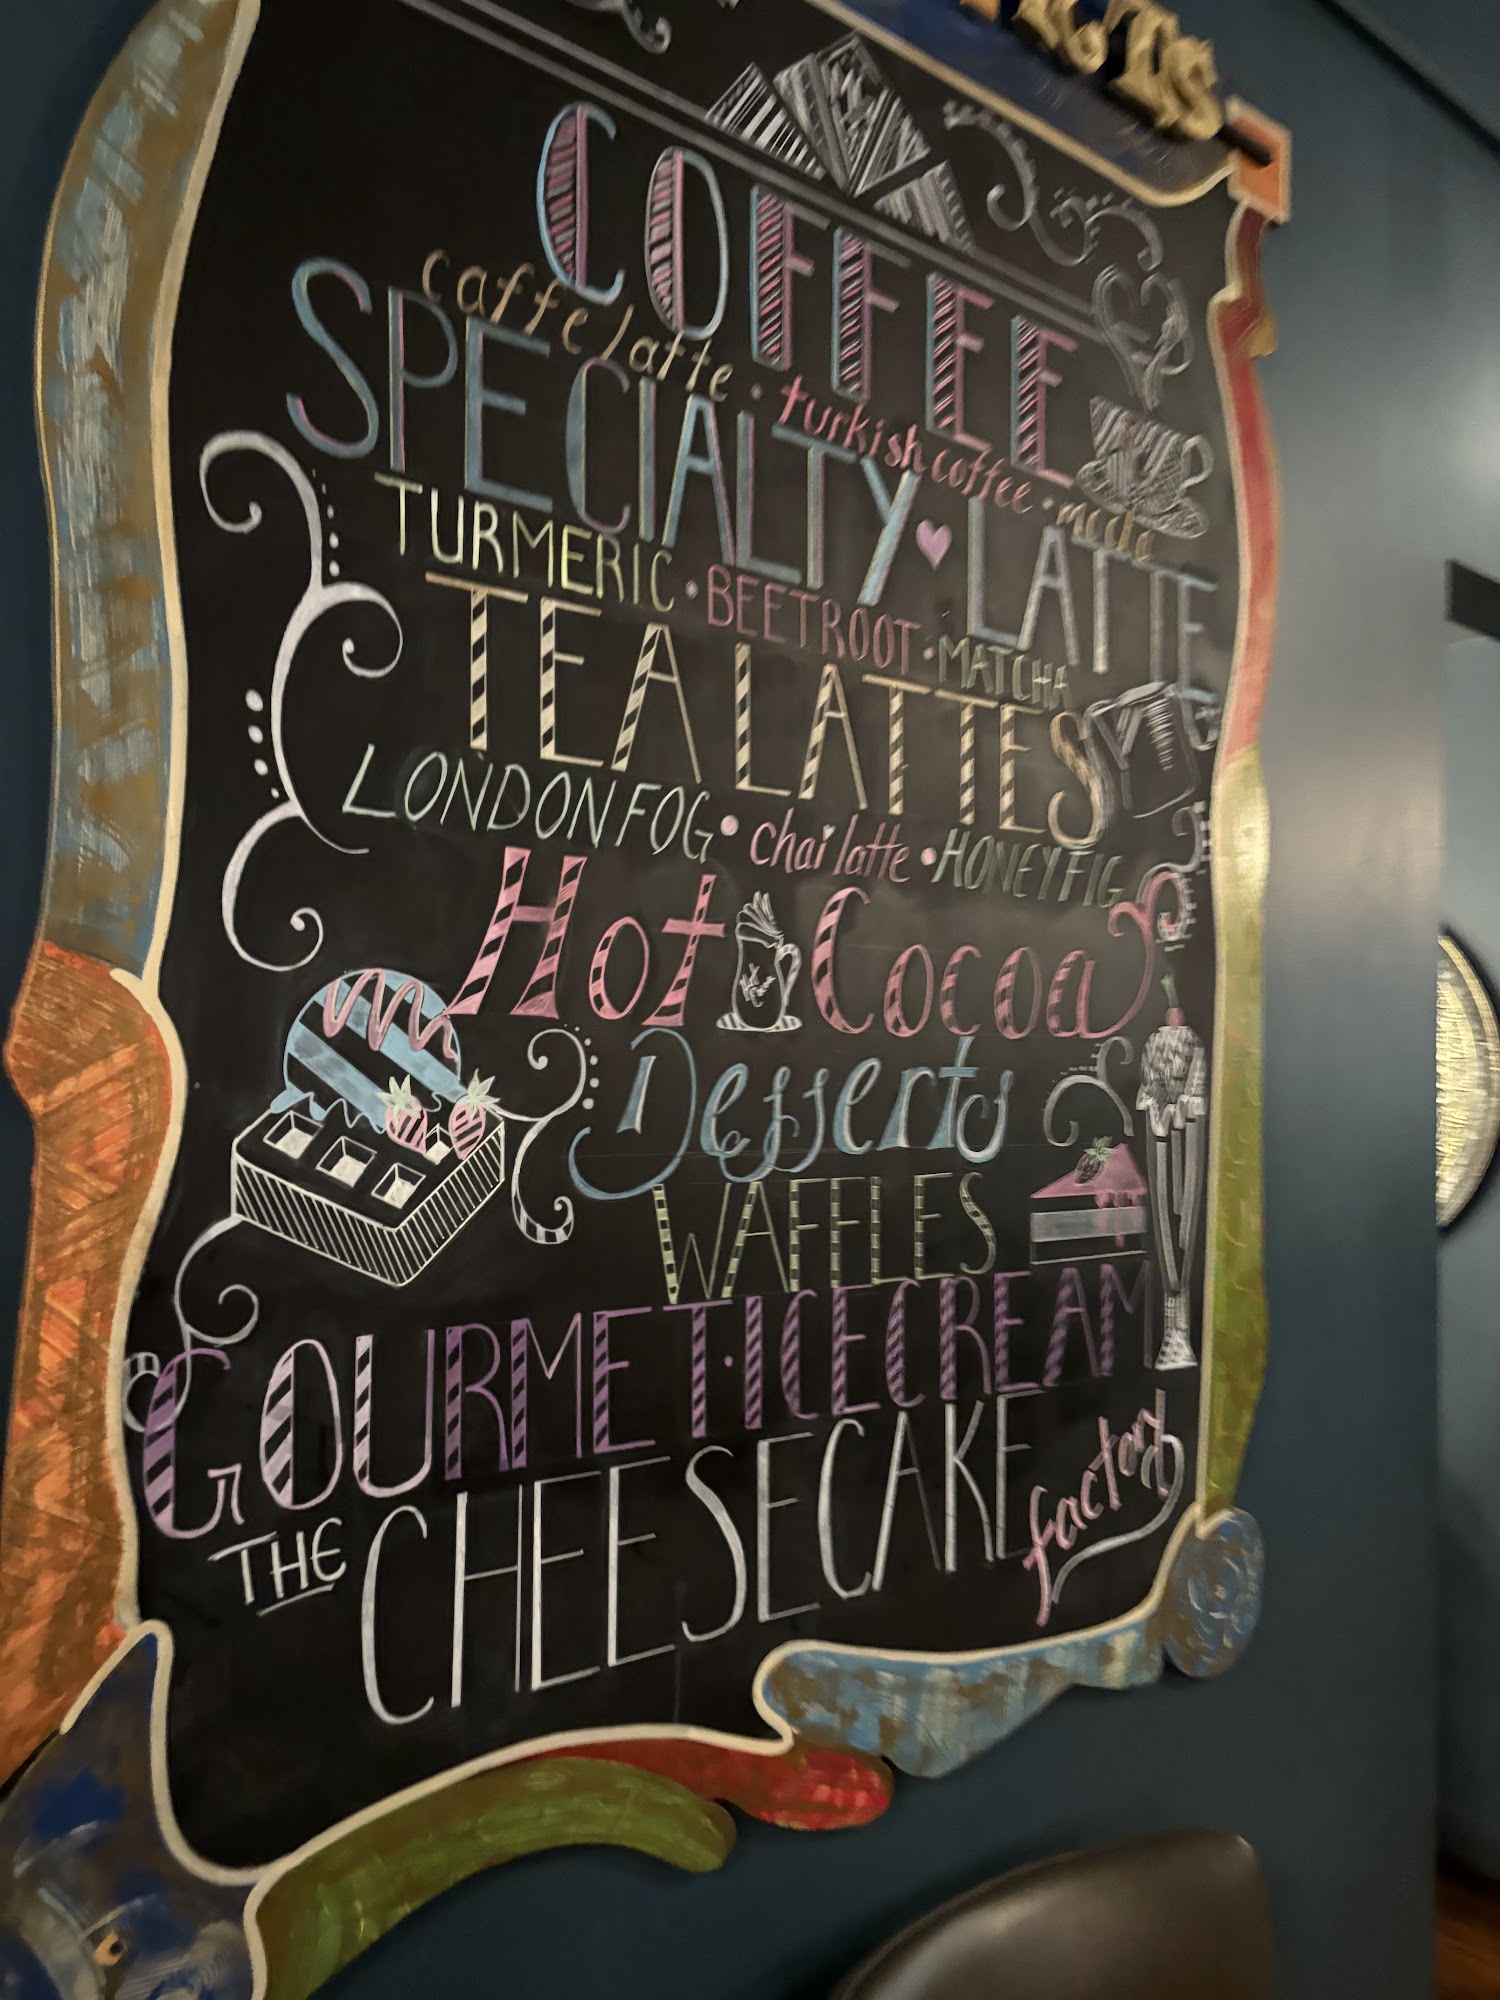 COFFEE
caffe latte · turkish coffee · mocha
SPECIALTY LATTE
TURMERIC · BEETROOT · MATCHA
TEA LATTES
LONDON FOG · chai latte · HONEY FIG
Hot Cocoa
Desserts
WAFFLES
GOURMET · ICE CREAM
THE CHEESECAKE factory